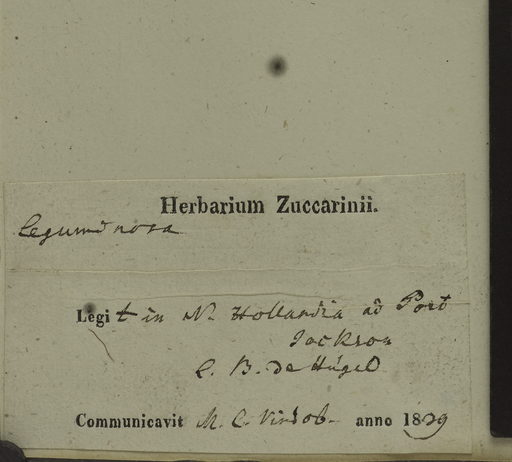 Herbarium Zuccarinii.
Leguminosa
Legit in N. Hollandia ad Port
Jackson
C. B. de Hügel
Communicavit M. C. Vindob. anno 1839